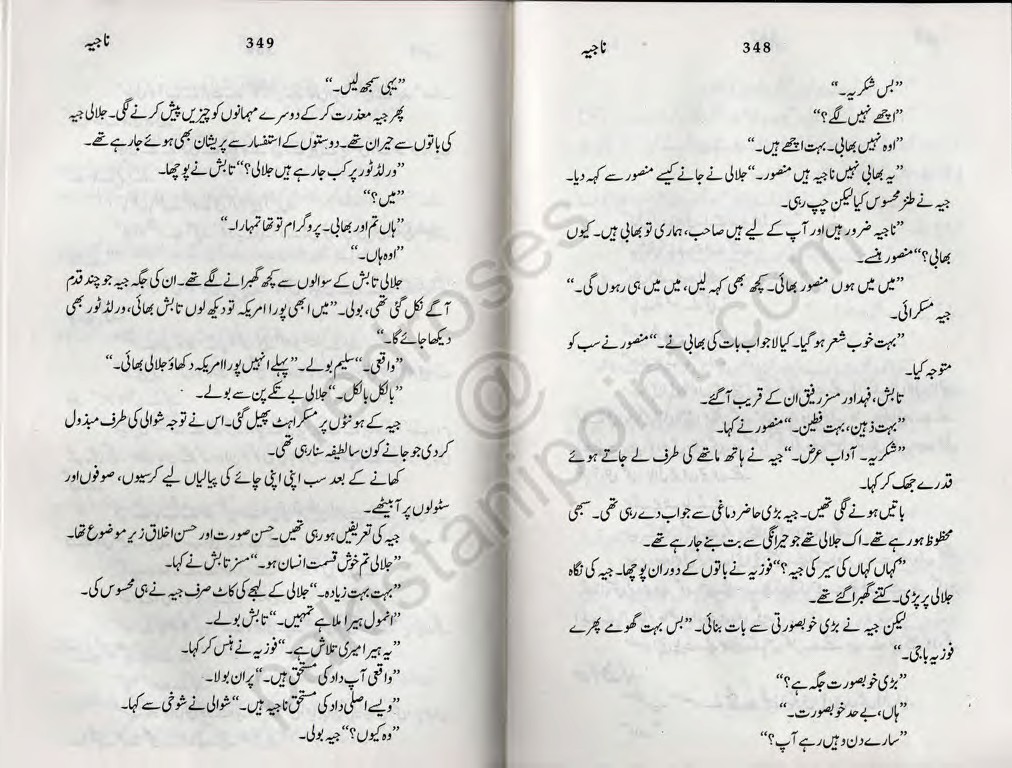 348
ناجیہ
”بس شکریہ۔“
”اچھے نہیں لگے؟“
”اوہ نہیں بھابی۔ بہت اچھے ہیں۔“
”یہ بھابی نہیں ناجیہ ہیں منصور۔“ جلالی نے جانے کیسے منصور سے کہہ دیا۔
جیہ نے طنز محسوس کیا لیکن چپ رہی۔
”ناجیہ ضرور ہیں اور آپ کے لیے ہیں صاحب، ہماری تو بھابی ہیں۔ کیوں
بھابی؟“ منصور ہنسے۔
”میں میں ہوں منصور بھائی۔ کچھ بھی کہہ لیں، میں میں ہی رہوں گی۔“
جیہ مسکرائی۔
”بہت خوب شعر ہو گیا۔ کیا لاجواب بات کی بھابی نے۔“ منصور نے سب کو
متوجہ کیا۔
تابش، فہد اور مسز رفیق ان کے قریب آ گئے۔
”بہت ذہین، بہت فطین۔“ منصور نے کہا۔
”شکریہ۔ آداب عرض۔“ جیہ نے ہاتھ ماتھے کی طرف لے جاتے ہوئے
قدرے جھک کر کہا۔
باتیں ہونے لگی تھیں۔ جیہ بڑی حاضر دماغی سے جواب دے رہی تھی۔ سبھی
محظوظ ہو رہے تھے۔ اک جلالی تھے جو حیرانگی سے بت بنے جا رہے تھے۔
”کہاں کہاں کی سیر کی جیہ؟“ فوزیہ نے باتوں کے دوران پوچھا۔ جیہ کی نگاہ
جلالی پر پڑی۔ کتنے گھبرا گئے تھے۔
لیکن جیہ نے بڑی خوبصورتی سے بات بنائی۔ ”بس بہت گھومے پھرے
فوزیہ باجی۔“
”بڑی خوبصورت جگہ ہے؟“
”ہاں، بے حد خوبصورت۔“
”سارے دن وہیں رہے آپ؟“
349
ناجیہ
”یہی سمجھ لیں۔“
پھر جیہ معذرت کر کے دوسرے مہمانوں کو چیزیں پیش کرنے لگی۔ جلالی جیہ
کی باتوں سے حیران تھے۔ دوستوں کے استفسار سے پریشان بھی ہوئے جا رہے تھے۔
”ورلڈ ٹور پر کب جا رہے ہیں جلالی؟“ تابش نے پوچھا۔
”میں؟“
”ہاں تم اور بھابی۔ پروگرام تو تھا تمہارا۔“
”اوہ ہاں۔“
جلالی تابش کے سوالوں سے کچھ گھبرانے لگے تھے۔ ان کی جگہ جیہ جو چند قدم
آگے نکل گئی تھی، بولی۔ ”میں ابھی پورا امریکہ تو دیکھ لوں تابش بھائی، ورلڈ ٹور بھی
دیکھا جائے گا۔“
”واقعی۔“ سلیم بولے۔ ”پہلے انہیں پورا امریکہ دکھاؤ جلالی بھائی۔“
”بالکل بالکل۔“ جلالی بے تکے پن سے بولے۔
جیہ کے ہونٹوں پر مسکراہٹ پھیل گئی۔ اس نے توجہ شوالی کی طرف مبذول
کر دی جو جانے کون سا لطیفہ سنا رہی تھی۔
کھانے کے بعد سب اپنی اپنی چائے کی پیالیاں لیے کرسیوں، صوفوں اور
سٹولوں پر آ بیٹھے۔
جیہ کی تعریفیں ہو رہی تھیں۔ حسن صورت اور حسن اخلاق زیر موضوع تھا۔
”جلالی تم خوش قسمت انسان ہو۔“ مسز تابش نے کہا۔
”بہت بہت زیادہ۔“ جلالی کے لہجے کی کاٹ صرف جیہ نے ہی محسوس کی۔
”انمول ہیرا ملا ہے تمہیں۔“ تابش بولے۔
”یہ ہیرا میری تلاش ہے۔“ فوزیہ نے ہنس کر کہا۔
”واقعی آپ داد کی مستحق ہیں۔“ پران بولا۔
”ویسے اصلی داد کی مستحق ناجیہ ہیں۔“ شوالی نے شوخی سے کہا۔
”وہ کیوں؟“ جیہ بولی۔
@
pakistanipoint.com